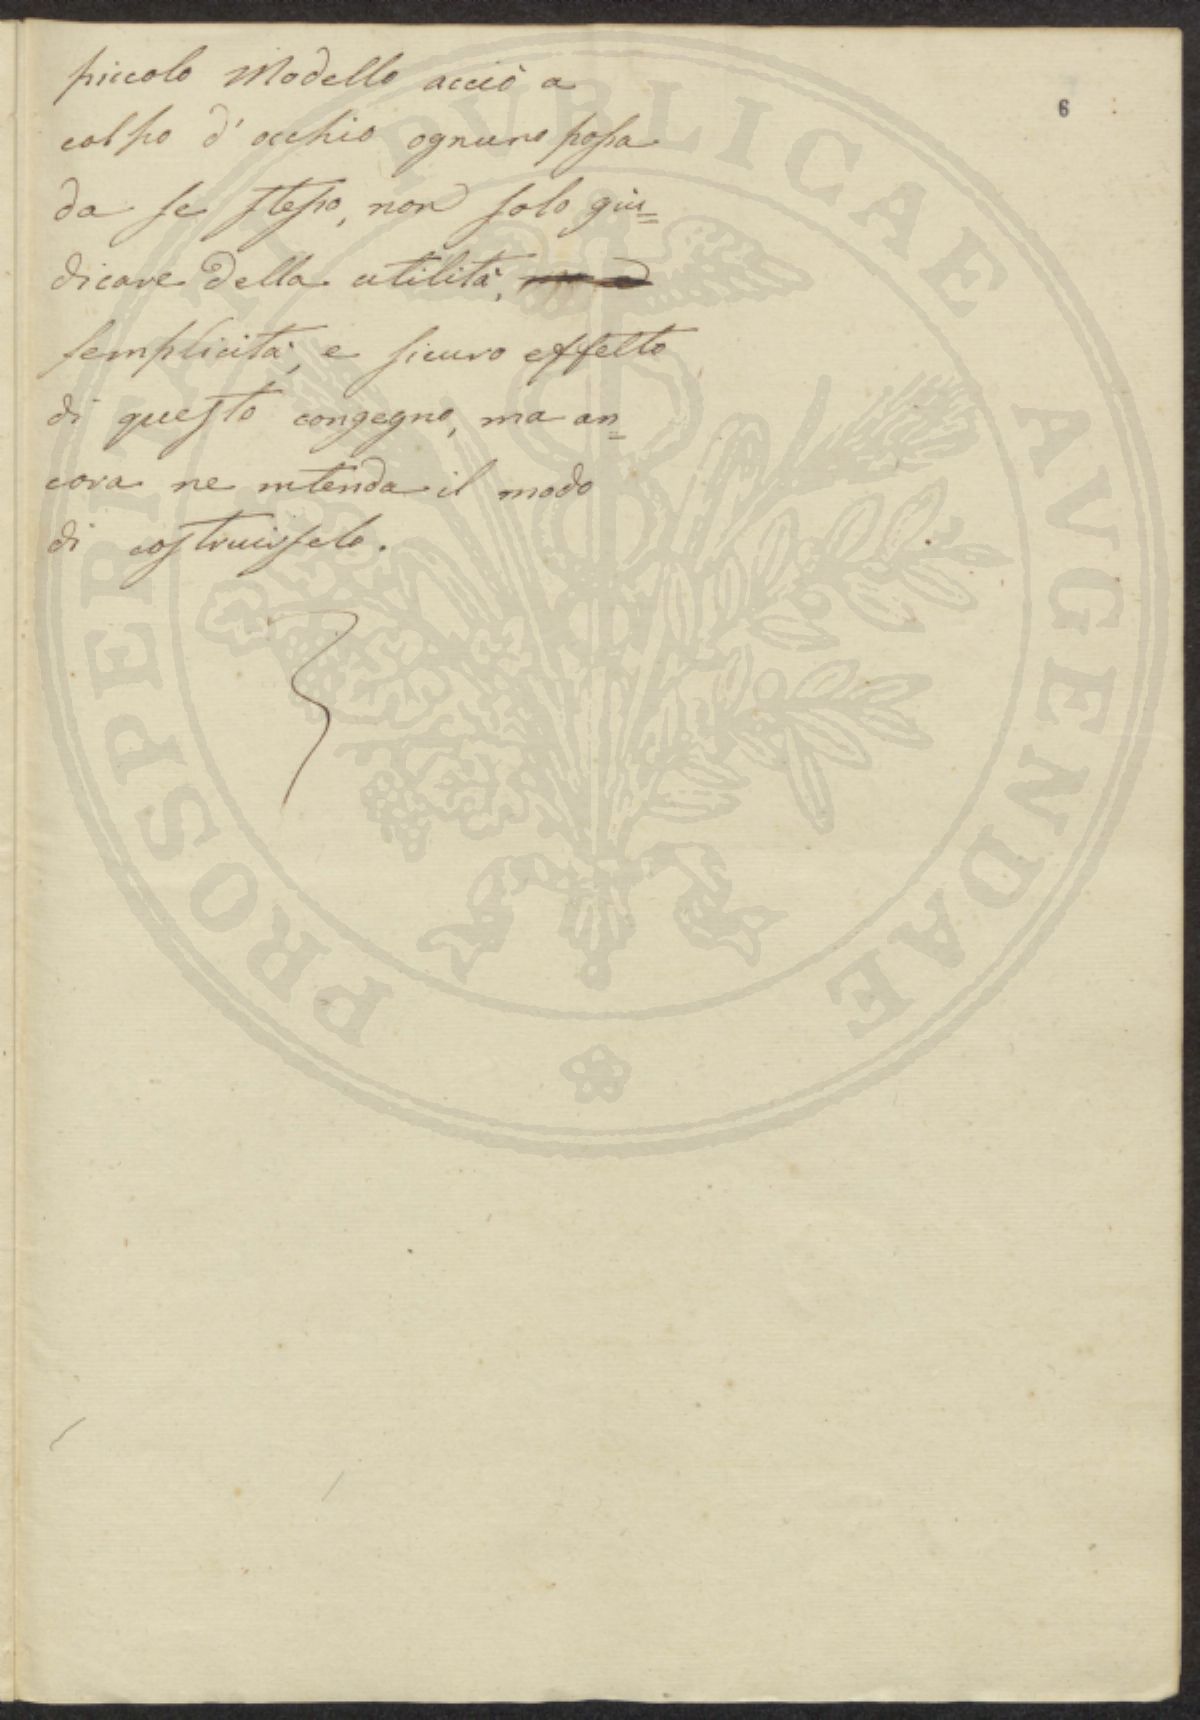 6
piccolo Modello acciò a
colpo d'occhio ognuno possa
da se stesso, non solo giu=
dicare della utilità,
semplicità, e sicuro effetto
di questo congegno, ma an=
cora ne intenda il modo
di costruirselo.
PROSPERITATI PVBLICAE AVGENDAE